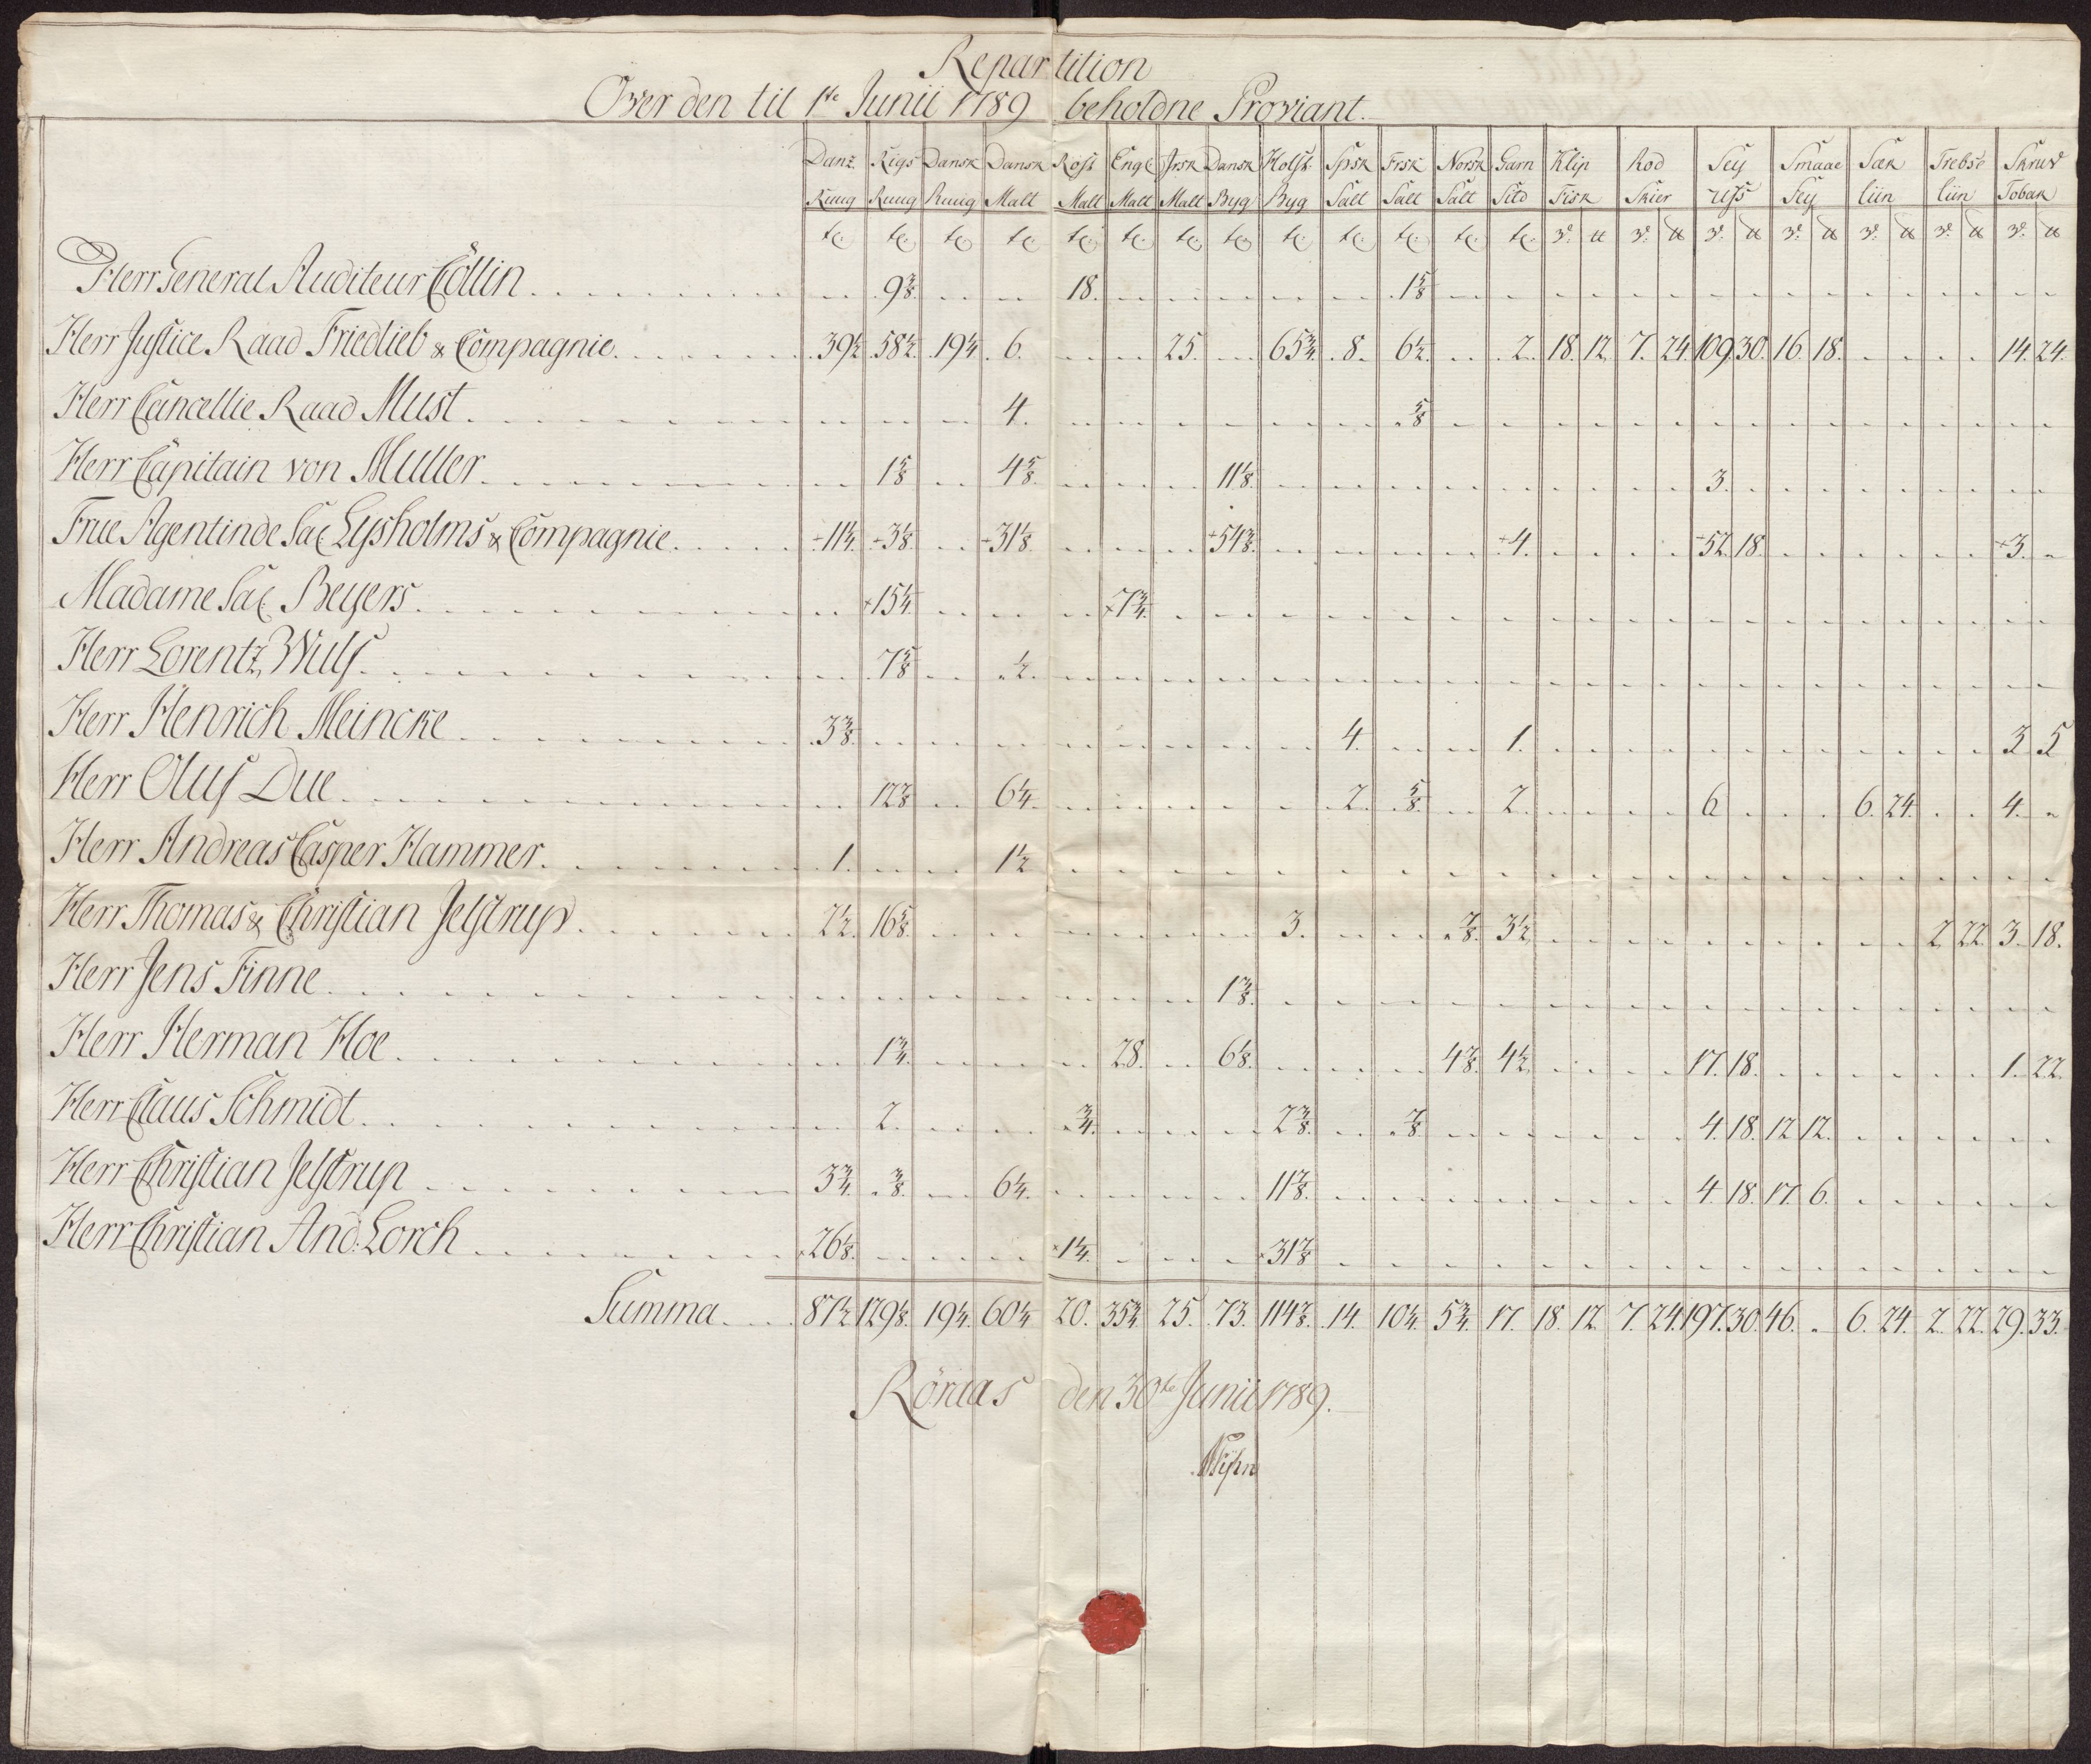 Repartition
Over den til 1ste Junii 1789 beholdne Proviant.
Danz Rigs Dansk Dansk Rost Engl Irsk Dansk Holst Spsk Frsk Norsk Garn Klip Rod Sey Smaae Sæk Trebse Skruv
Ruug Ruug Ruug Malt Malt Malt Malt Byg Byg Salt Salt Salt Sild Fisk Skier Ufs Sey liin liin Tobak
Herr General Auditeur Collin 9 3/8. 18. 1 5/8
Herr Justice Raad Friedlieb & Compagnie. 39 1/2. 58 1/2. 19 1/4. 6. 25. 65 3/4. 8. 6 1/2. 2. 18. 12. 7. 24. 109. 30. 16. 18. 14. 24.
Herr Cancellie Raad Must. 4. 5/8
Herr Capitain von Muller. 1 5/8 4 5/8. 11 1/8. 3.
Frue Agentinde Sal Lysholms & Compagnie. ÷11 1/4. ÷3 1/8. ÷31 1/8. ÷54 3/8. ÷4. ÷52. 18. ÷3.
Madame Sal Beyers. ×15 1/4. ×7 3/4.
Herr Lorentz Wulf. 7 5/8 1/2.
Herr Henrich Meincke 3 3/8. 4. 1. 3 5
Herr Oluf Due. 12 7/8. 6 1/4. 2. 5/8. 2. 6 6. 24. 4.
Herr Andreas Casper Hammer. 1. 1 1/2
Herr Thomas & Christian Jelstrup. 2 1/2. 16 5/8. 3. 7/8. 3 1/2. 2 22. 3. 18.
Herr Jens Finne. 1 3/8.
Herr Herman Hoe. 1 3/4. 28. 6 1/8. 4 7/8. 4 1/2. 17. 18. 1. 22.
Herr Claus Schmidt. 2. 3/4. 2 3/8. 7/8. 4. 18. 12 12.
Herr Christian Jelstrup 3 3/4. 3/8. 6 1/4. 11 7/8. 4 18. 17. 6.
Herr Christian And: Lorch ×26 1/8. ×1 1/4. ×31 7/8
Summa. 87 1/2. 129 1/8. 19 1/4. 60 1/4 20. 35 3/4. 25. 73. 114 7/8. 14. 10 1/4. 5 3/4. 17. 18. 12 7. 24. 197. 30. 46. 6. 24. 2. 22. 29. 33.
Röraas den 30te Junii 1789.